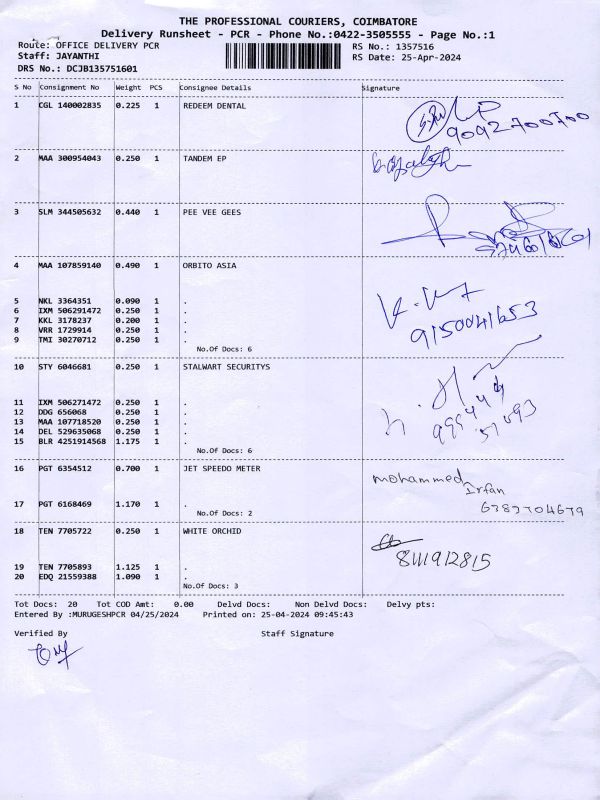 THE PROFESSIONAL COURIERS, COIMBATORE
Delivery Runsheet - PCR - Phone No.:0422-3505555 - Page No.:1
Route: OFFICE DELIVERY PCR
RS No.: 1357516
Staff: JAYANTHI
RS Date: 25-Apr-2024
DRS No.: DCJB135751601
S No Consignment No Weight PCS Consignee Details Signature
1 CGL 140002835 0.225 1 REDEEM DENTAL
9092700700
2 MAA 300954043 0.250 1 TANDEM EP
3 SLM 344505632 0.440 1 PEE VEE GEES
4 MAA 107859140 0.490 1 ORBITO ASIA
5 NKL 3364351 0.090 1 .
6 IXM 506291472 0.250 1 .
7 KKL 3178237 0.200 1 .
9150041653
8 VRR 1729914 0.250 1 .
9 TMI 30270712 0.250 1 .
No.Of Docs: 6
10 STY 6046681 0.250 1 STALWART SECURITYS
11 IXM 506271472 0.250 1 .
12 DDG 656068 0.250 1 .
13 MAA 107718520 0.250 1 .
14 DEL 529635068 0.250 1 .
15 BLR 4251914568 1.175 1 .
No.Of Docs: 6
16 PGT 6354512 0.700 1 JET SPEEDO METER
mohammed
Irfan
17 PGT 6168469 1.170 1 .
6383704679
No.Of Docs: 2
18 TEN 7705722 0.250 1 WHITE ORCHID
8111912815
19 TEN 7705893 1.125 1 .
20 EDQ 21559388 1.090 1 .
No.Of Docs: 3
Tot Docs: 20 Tot COD Amt: 0.00 Delvd Docs: Non Delvd Docs: Delvy pts:
Entered By :MURUGESHPCR 04/25/2024 Printed on: 25-04-2024 09:45:43
Verified By Staff Signature